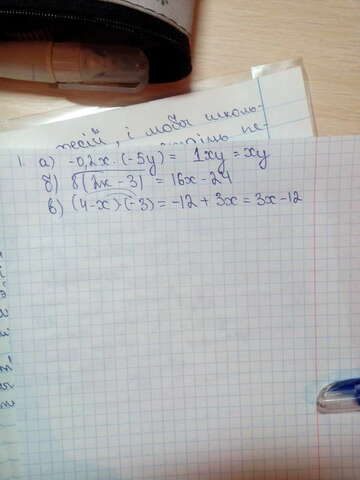 песій, і мовы школь-
1. а) -0,2x · (-5y) = 1xy = xy
б) 8(2x - 3) = 16x - 24
в) (4-x)·(-3) = -12 + 3x = 3x - 12